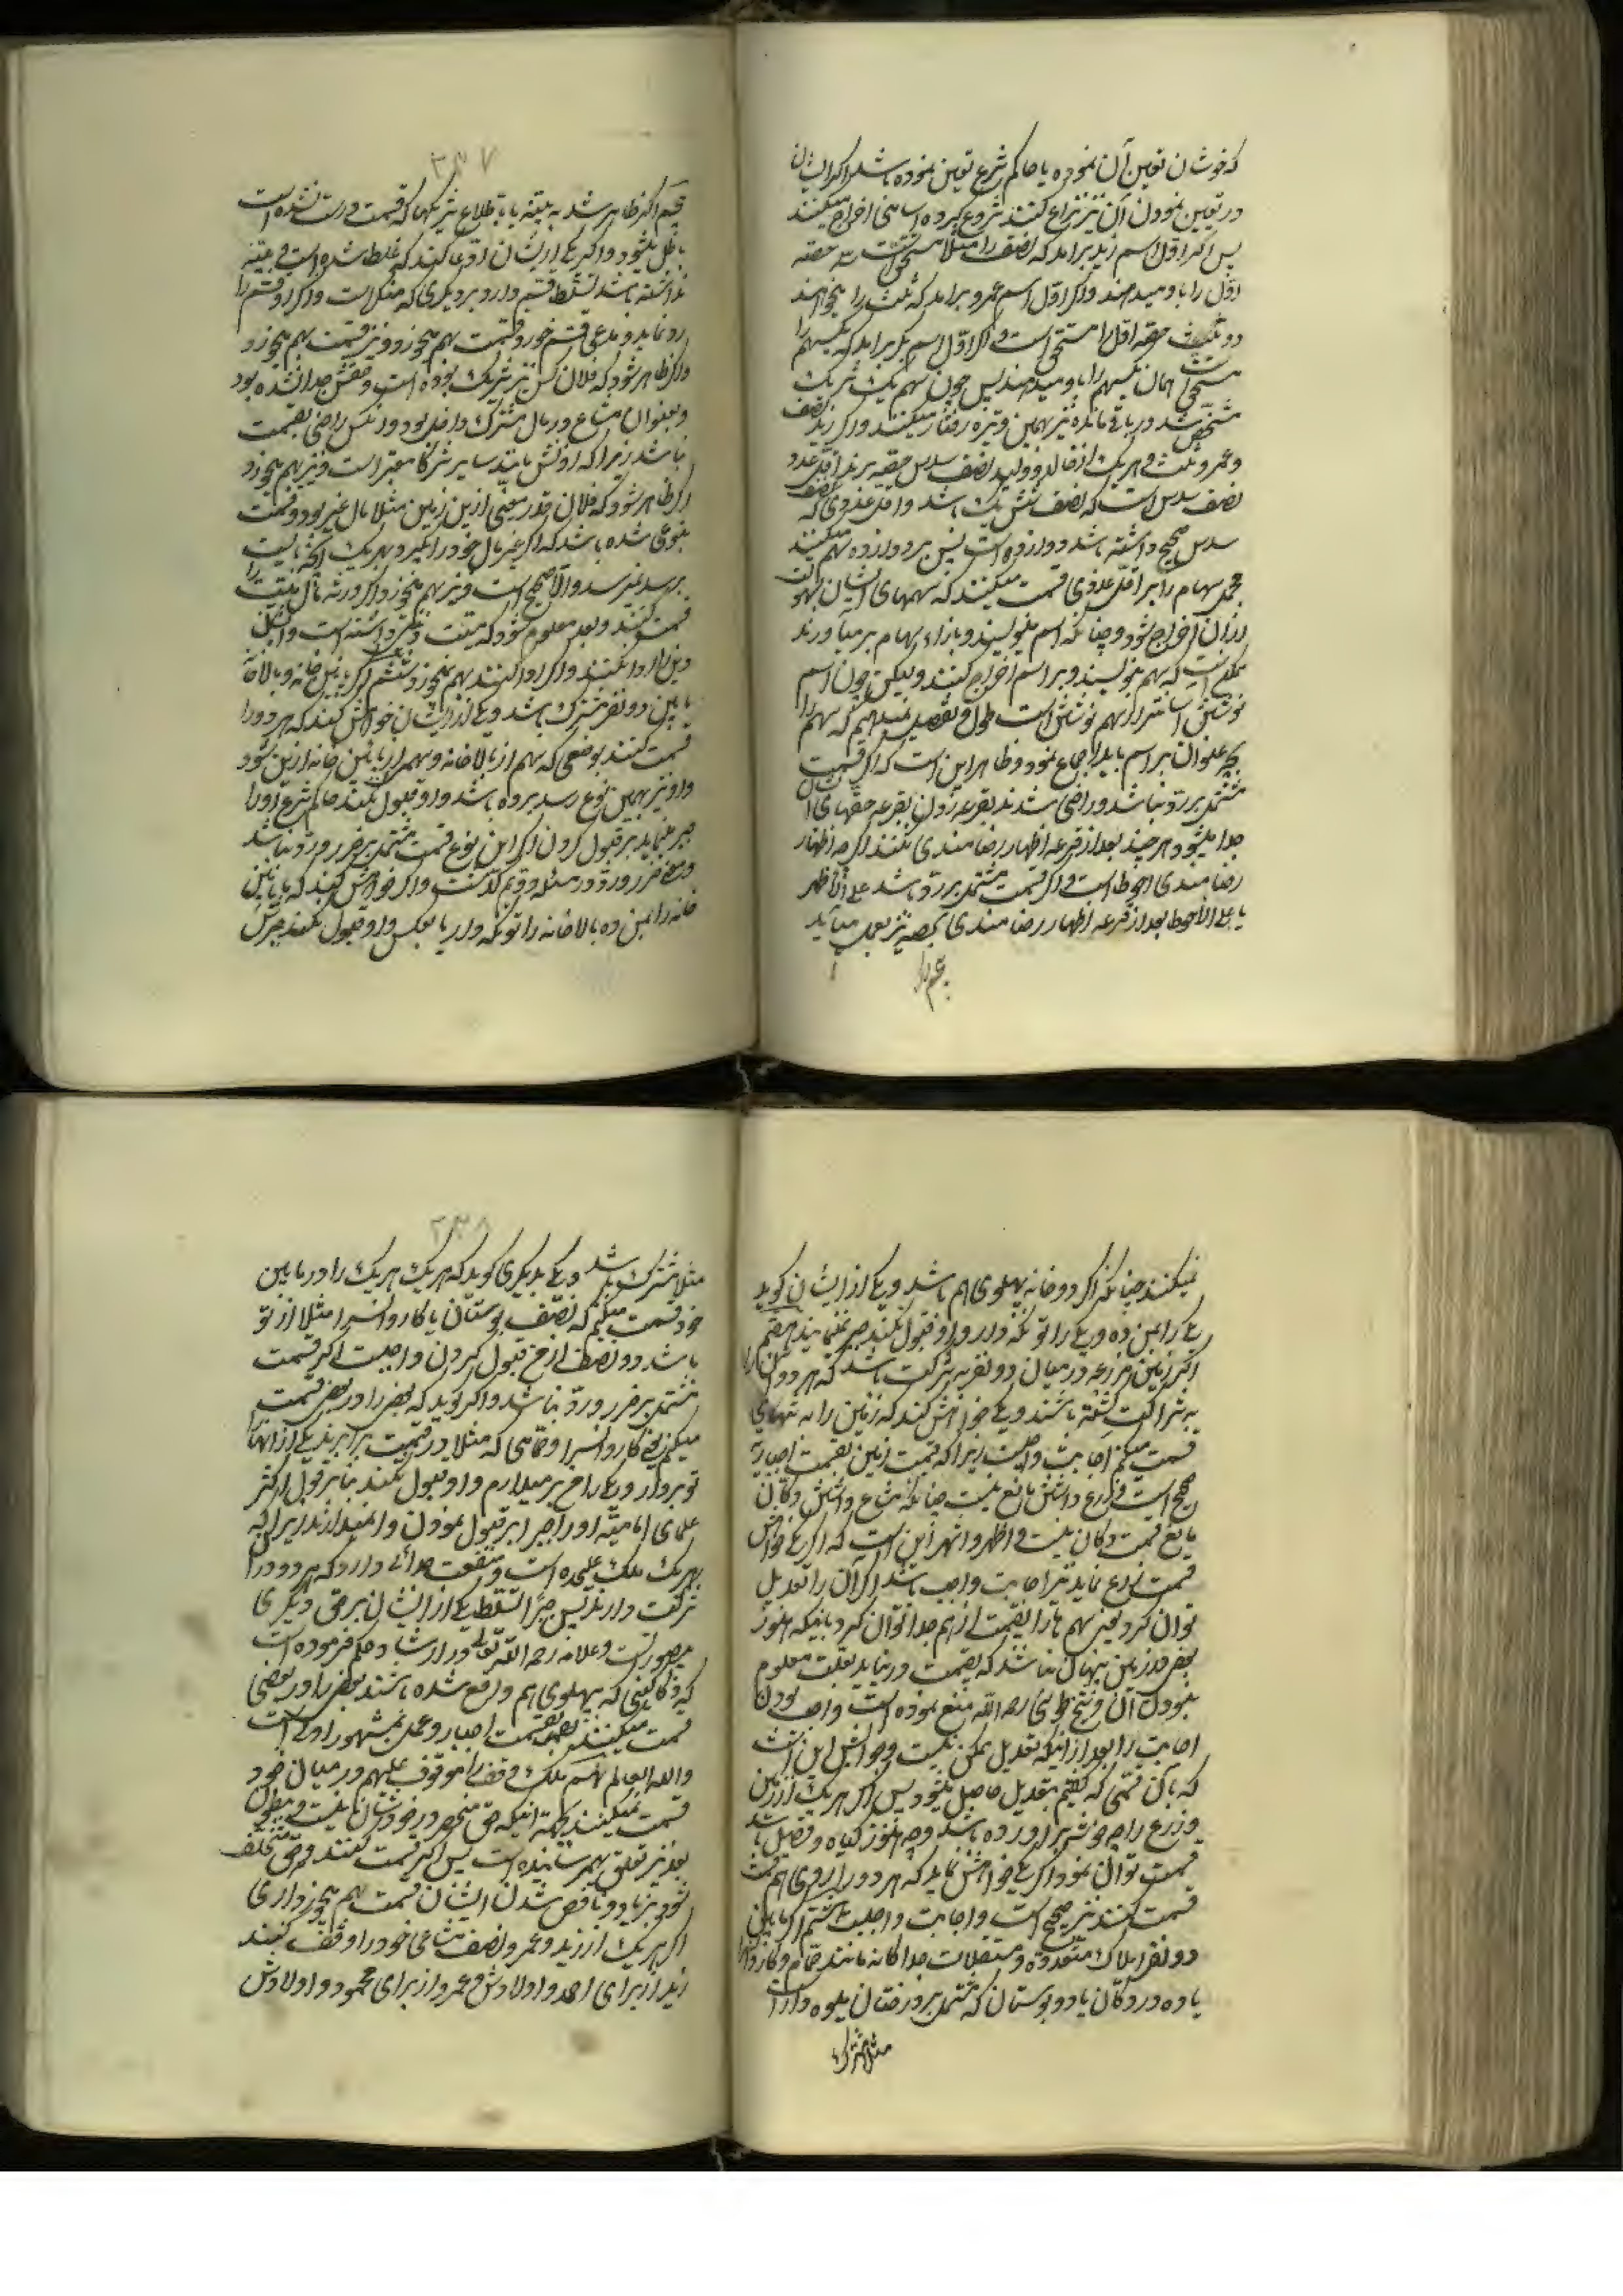 که خودشان تعیین آن نموده یا حاکم شرع تعین نموده باشد و اگر ایشان
در تعیین نمودن آن نیز نزاع کنند شروع بکرده اسامی اخراج میکنند
پس اگر اول اسم زید برامد که نصف را مثلا مستحق است سه حصه
اول را باو میدهند و اگر اول اسم عمرو برامد که ثلث را میخواهند
دو حصه اول را مستحق است و اگر اول اسم بکر برامد که یکسهم را
مستحق است همان یکسهم را باو میدهند پس چون سهم یک شریک
مشخص شد در باقی مانده نیز بهمین وتیره رفتار میکنند و اگر زید نصف
و عمرو ثلث و هر یک از خالد و ولید نصف سدس حصه برند اقل عدد
نصف سدس است که نصف شش یک باشد و اقل عددی که نصف
سدس صحیح داشته باشد دوازده است پس بر دوازده سهم میکنند
مجمل سهام را بر اقل عددی قسمت میکنند که سهمهای ایشان بسهولت
از آن اخراج شود و چنانکه اسم مینویسند و بازاء سهام بر می آورند
ممکن است که سهم بنویسند و بر اسم اخراج کنند و لیکن چون اسم
نوشتن آسانتر از سهم نوشتن است طول و تفصیل نمیدهیم که سهم را
بچه عنوان بر اسم باید اخراج نمود و ظاهر این است که اگر قسمت
مشتمل بر رد نباشد و راضی شدند بقرعه زدن بقرعه حصهای ایشان
جدا میشود هر چند بعد از قرعه اظهار رضامندی نکنند اگر چه اظهار
رضامندی احوط است و اگر قسمت مشتمل بر رد باشد علی الاظهر
یا علی الاحوط بعد از قرعه اظهار رضامندی بحصه نیز بعمل میآید
پنجم اگر
۲۳۷
پنجم اگر ظاهر شد به بینه یا باطلاع شریکها که قسمت درست نشده است
باطل میشود و اگر یکی از ایشان ادعا کند که غلط شده است و بینه
نداشته باشد تسلط قسم دارد بر دیگری که منکر است و اگر او قسم را
رد نماید و مدعی قسم خورد قسمت بهم میخورد و نیز قسمت بهم میخورد
و اگر ظاهر شود که فلان کس نیز شریک بوده است و حقش جدا نشده بود
و بعنوان مشاع در مال مشترک داخل بود و آن کس راضی بقسمت
نباشد زیرا که اذنش مانند سایر شرکا معتبر است و نیز بهم میخورد
اگر ظاهر شود که فلان قدر معینی ازین زمین مثلا مال غیر بود و قسمت
بنوعی شده باشد که اگر غیر مال خود را بگیرد بهر یک آنچه بایست
برسد نمیرسد و الا صحیح است و نیز بهم میخورد اگر ورثه مال میت را
قسمت کنند و بعد معلوم شود که میت قرض داشته است و ایشان
دین او را ادا نکنند و اگر ادا کنند بهم نمیخورد ششم اگر زیر خانه و بالاخانه
ما بین دو نفر مشترک باشد و یکی از ایشان خواهش کند که هر دو را
قسمت کنند بوضعی که بهم از بالاخانه و سهم از پائین خانه ازین شود
و او نیز بهمین نوع رسد برده باشد و او قبول نکند حاکم شرع او را
جبر مینماید بر قبول کردن اگر این نوع قسمت مشتمل بر ضرر و رد نباشد
و معنی ضرر و رد در مسئله دویم گذشت و اگر خواهش کند که پائین
خانه را بمن ده بالاخانه را تو نگهدار یا بعکس و او قبول نکند جبرش
نمیکنند چنانکه اگر دو خانه پهلوی هم باشد و یکی از ایشان گوید
یکی را بمن ده و یکی را تو نگه دار و او قبول نکند جبر نمینمایند هفتم
اگر زمین مزرعه در میان دو نفر به شرکت باشد که هر دو آن را
به شراکت کشته باشند و یکی خواهش کند که زمین را به تنهائی
قسمت میکنم اجابت واجبست زیرا که قسمت زمین بقسمت اجبار
صحیح است و زرع داشتن مانع نیست چنانکه متاع داشتن دکان
مانع قسمت دکان نیست و اظهر و اشهر این است که اگر یکی خواهش
قسمت زرع نماید نیز اجابت واجب باشد اگر آن را تعدیل
توان کرد یعنی سهم ها را بقسمت از هم جدا توان کرد باینکه هنوز
بعضی در زمین پنهان نباشد که بقسمت در نیاید بعلت معلوم
نبودن آن و شیخ طوسی رحمه الله منع نموده است واجب بودن
اجابت را بعد از آنکه تعدیل ممکن نیست و جوابش این است
که بآن قسمی که گفتیم تعدیل حاصل میشود پس اگر هر یک از زمین
و زرع را چه خوشه بر آورده باشد و چه هنوز گیاه و فصل باشد
قسمت توان نمود و اگر یکی خواهش نماید که هر دو را بر روی هم قسمت
قسمت کنند نیز صحیح است و اجابت واجبست هشتم اگر ما بین
دو نفر املاک متعدده و مستقلات جداگانه مانند حمام و کاروانسرا
یا ده در دکان یا دو بوستان که مشتمل بر درختان میوه دار است
مثلا مشترک
۲۳۸
مثلا مشترک باشد و یکی بدیگری گوید که هر یک هر یک را در ما بین
خود قسمت میکنیم که نصف بوستان یا کاروانسرا مثلا از تو
باشد و نصف از من قبول کردن واجبست اگر قسمت
مشتمل بر ضرر و رد نباشد و اگر گوید که بعضی را در بعضی قسمت
میکنم یعنی کاروانسرا و حمامی که مثلا در قیمت برابرند یکی از آنها را
تو بردار و یکی را من بر میدارم و او قبول نکند بنا بر قول اکثر
علمای امامیه او را جبر بر قبول نمودن نمیدارند زیرا که
هر یک ملک علیحده است و منفعت جدائی دارد که هر دو در آن
شرکت دارند پس جبرا تسلط یکی از ایشان بر حق دیگری
بیصورتست و علامه رحمه الله تعالی در ارشاد حکم فرموده است
که دکاکینی که پهلوی هم واقع شده باشند بعضی را در بعضی
قسمت میکنند بقسمت اجبار و عمل بمشهور اولی است
و الله العالم نهم ملک وقف را موقوف علیهم در میان خود
قسمت نمیکنند بجهة آنکه حق منحصر در خودشان نیست و بطون
بعد نیز تعلق بهم رسانیده است پس اگر قسمت کنند و حق مختلف
شود بزیاد و ناقص شدن ایشان قسمت بهم میخورد آری
اگر هر یک از زید و عمرو نصف مشاعی خود را وقف کنند
زید از برای احمد و اولادش و عمرو از برای محمود و اولادش